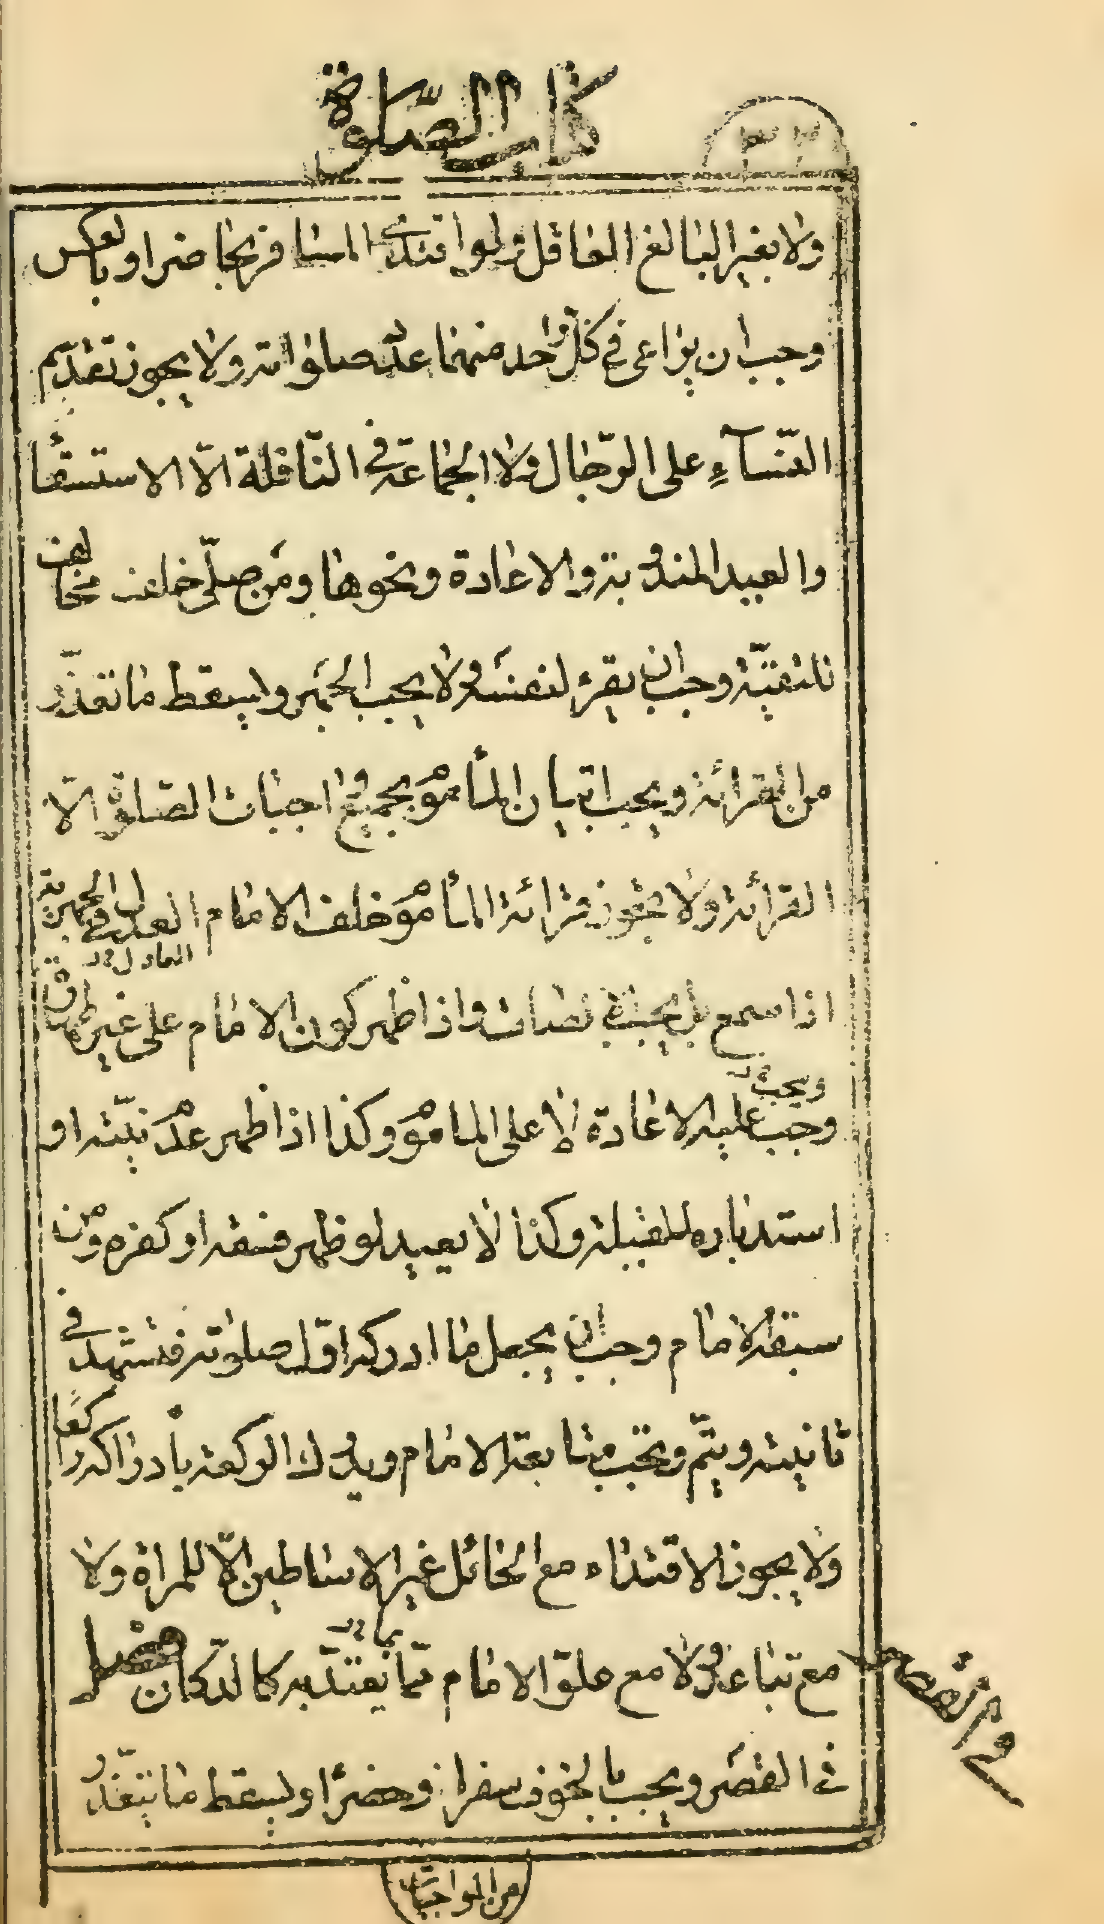 كتاب الصّلوة
ولا بغير البالغ العاقل ولو اقتدى المسافر بحاضر او بالعكس
وجب ان يراعى فى كلّ واحد منهما عدد صلواته ولا يجوز تقدّم
النّسآءِ على الرّجال ولا الجماعة فى النّافلة الّا الاستسقاء
والعيد المندوبة والاعادة ونحوها ومن صلّى خلف مخالف
للتقيّة وجب ان يقرء لنفسه ولا يجب الجهر ويسقط ما تعذّر
من القرائة ويجب اتيان المأموم بجميع واجبات الصّلوة الّا
القرائة ولا يجوز قرائة المأموم خلف الامام العدل فى الجهرية
العادل
اذا سمع بل يجب الانصات واذا ظهر كون الامام على غير طهارة
ويجب
وجب عليه الاعادة لا على الماموم وكذا اذا ظهر عدم نيّته او
استدباره للقبلة وكذا لا يعيد لو ظهر فسقه او كفره ومن
سبقه الامام وجب ان يجعل ما ادركه اوّل صلوته فيتشهد فى
ثانيته ويتمّ ويجب متابعة الامام ويدرك الركعة بادراكه راكعًا
ولا يجوز الاقتداء مع الحائل غير الاساطين الّا للمراة ولا
بما
مع تباعد ولا مع علوّ الامام بما يعتدّ به كالدّكان فصل
فى القصر
فى القصر ويجب بالخوف سفرا وحضرًا ويسقط ما يتعذّر
من الواجبات